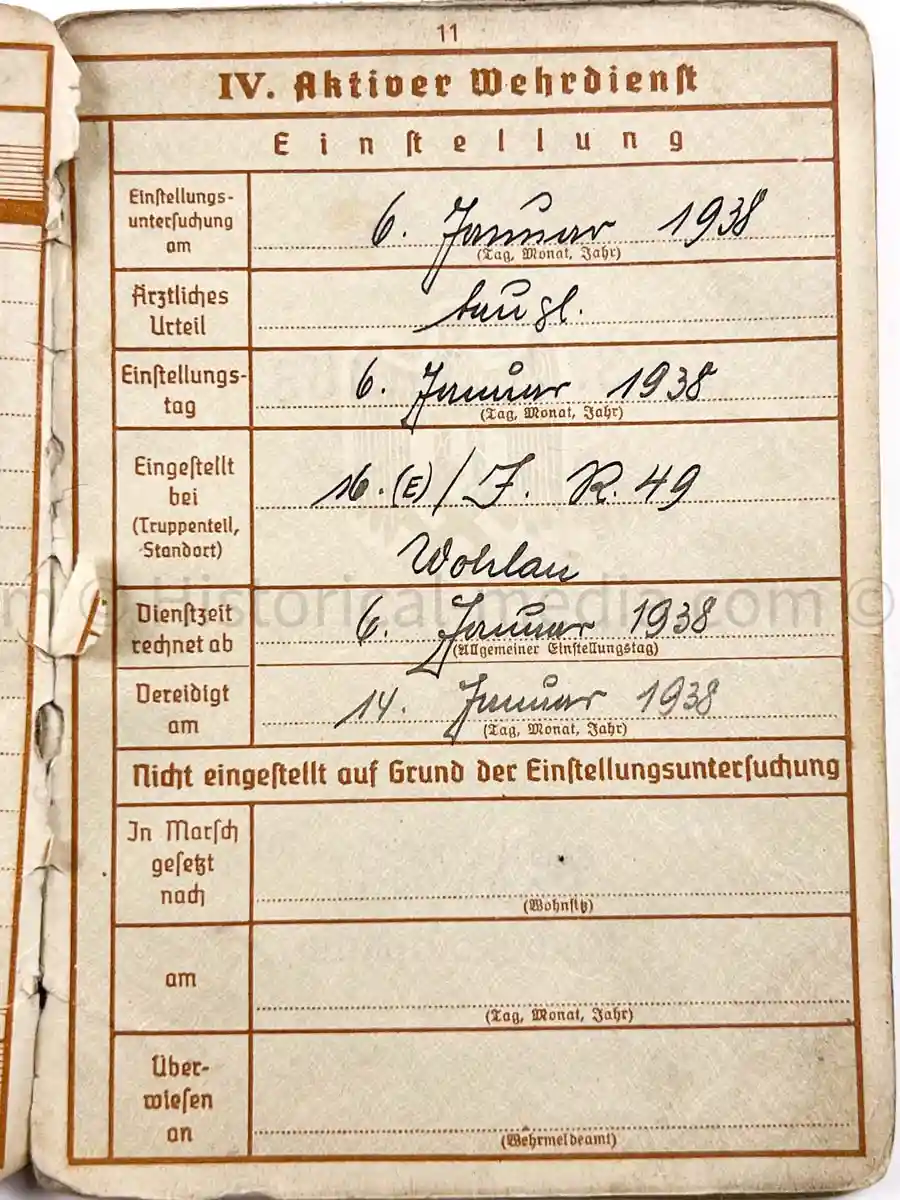 11
IV. Aktiver Wehrdienst
Einstellung
Einstellungs-
untersuchung
am
6. Januar 1938
(Tag, Monat, Jahr)
Ärztliches
Urteil
taugl.
Einstellungs-
tag
6. Januar 1938
(Tag, Monat, Jahr)
Eingestellt
bei
(Truppenteil,
Standort)
16.(E)/J. R. 49
Wohlau
Dienstzeit
rechnet ab
6. Januar 1938
(Allgemeiner Einstellungstag)
Vereidigt
am
14. Januar 1938
(Tag, Monat, Jahr)
Nicht eingestellt auf Grund der Einstellungsuntersuchung
In Marsch
gesetzt
nach
(Wohnsitz)
am
(Tag, Monat, Jahr)
Über-
wiesen
an
(Wehrmeldeamt)
m © Historical-media.com ©